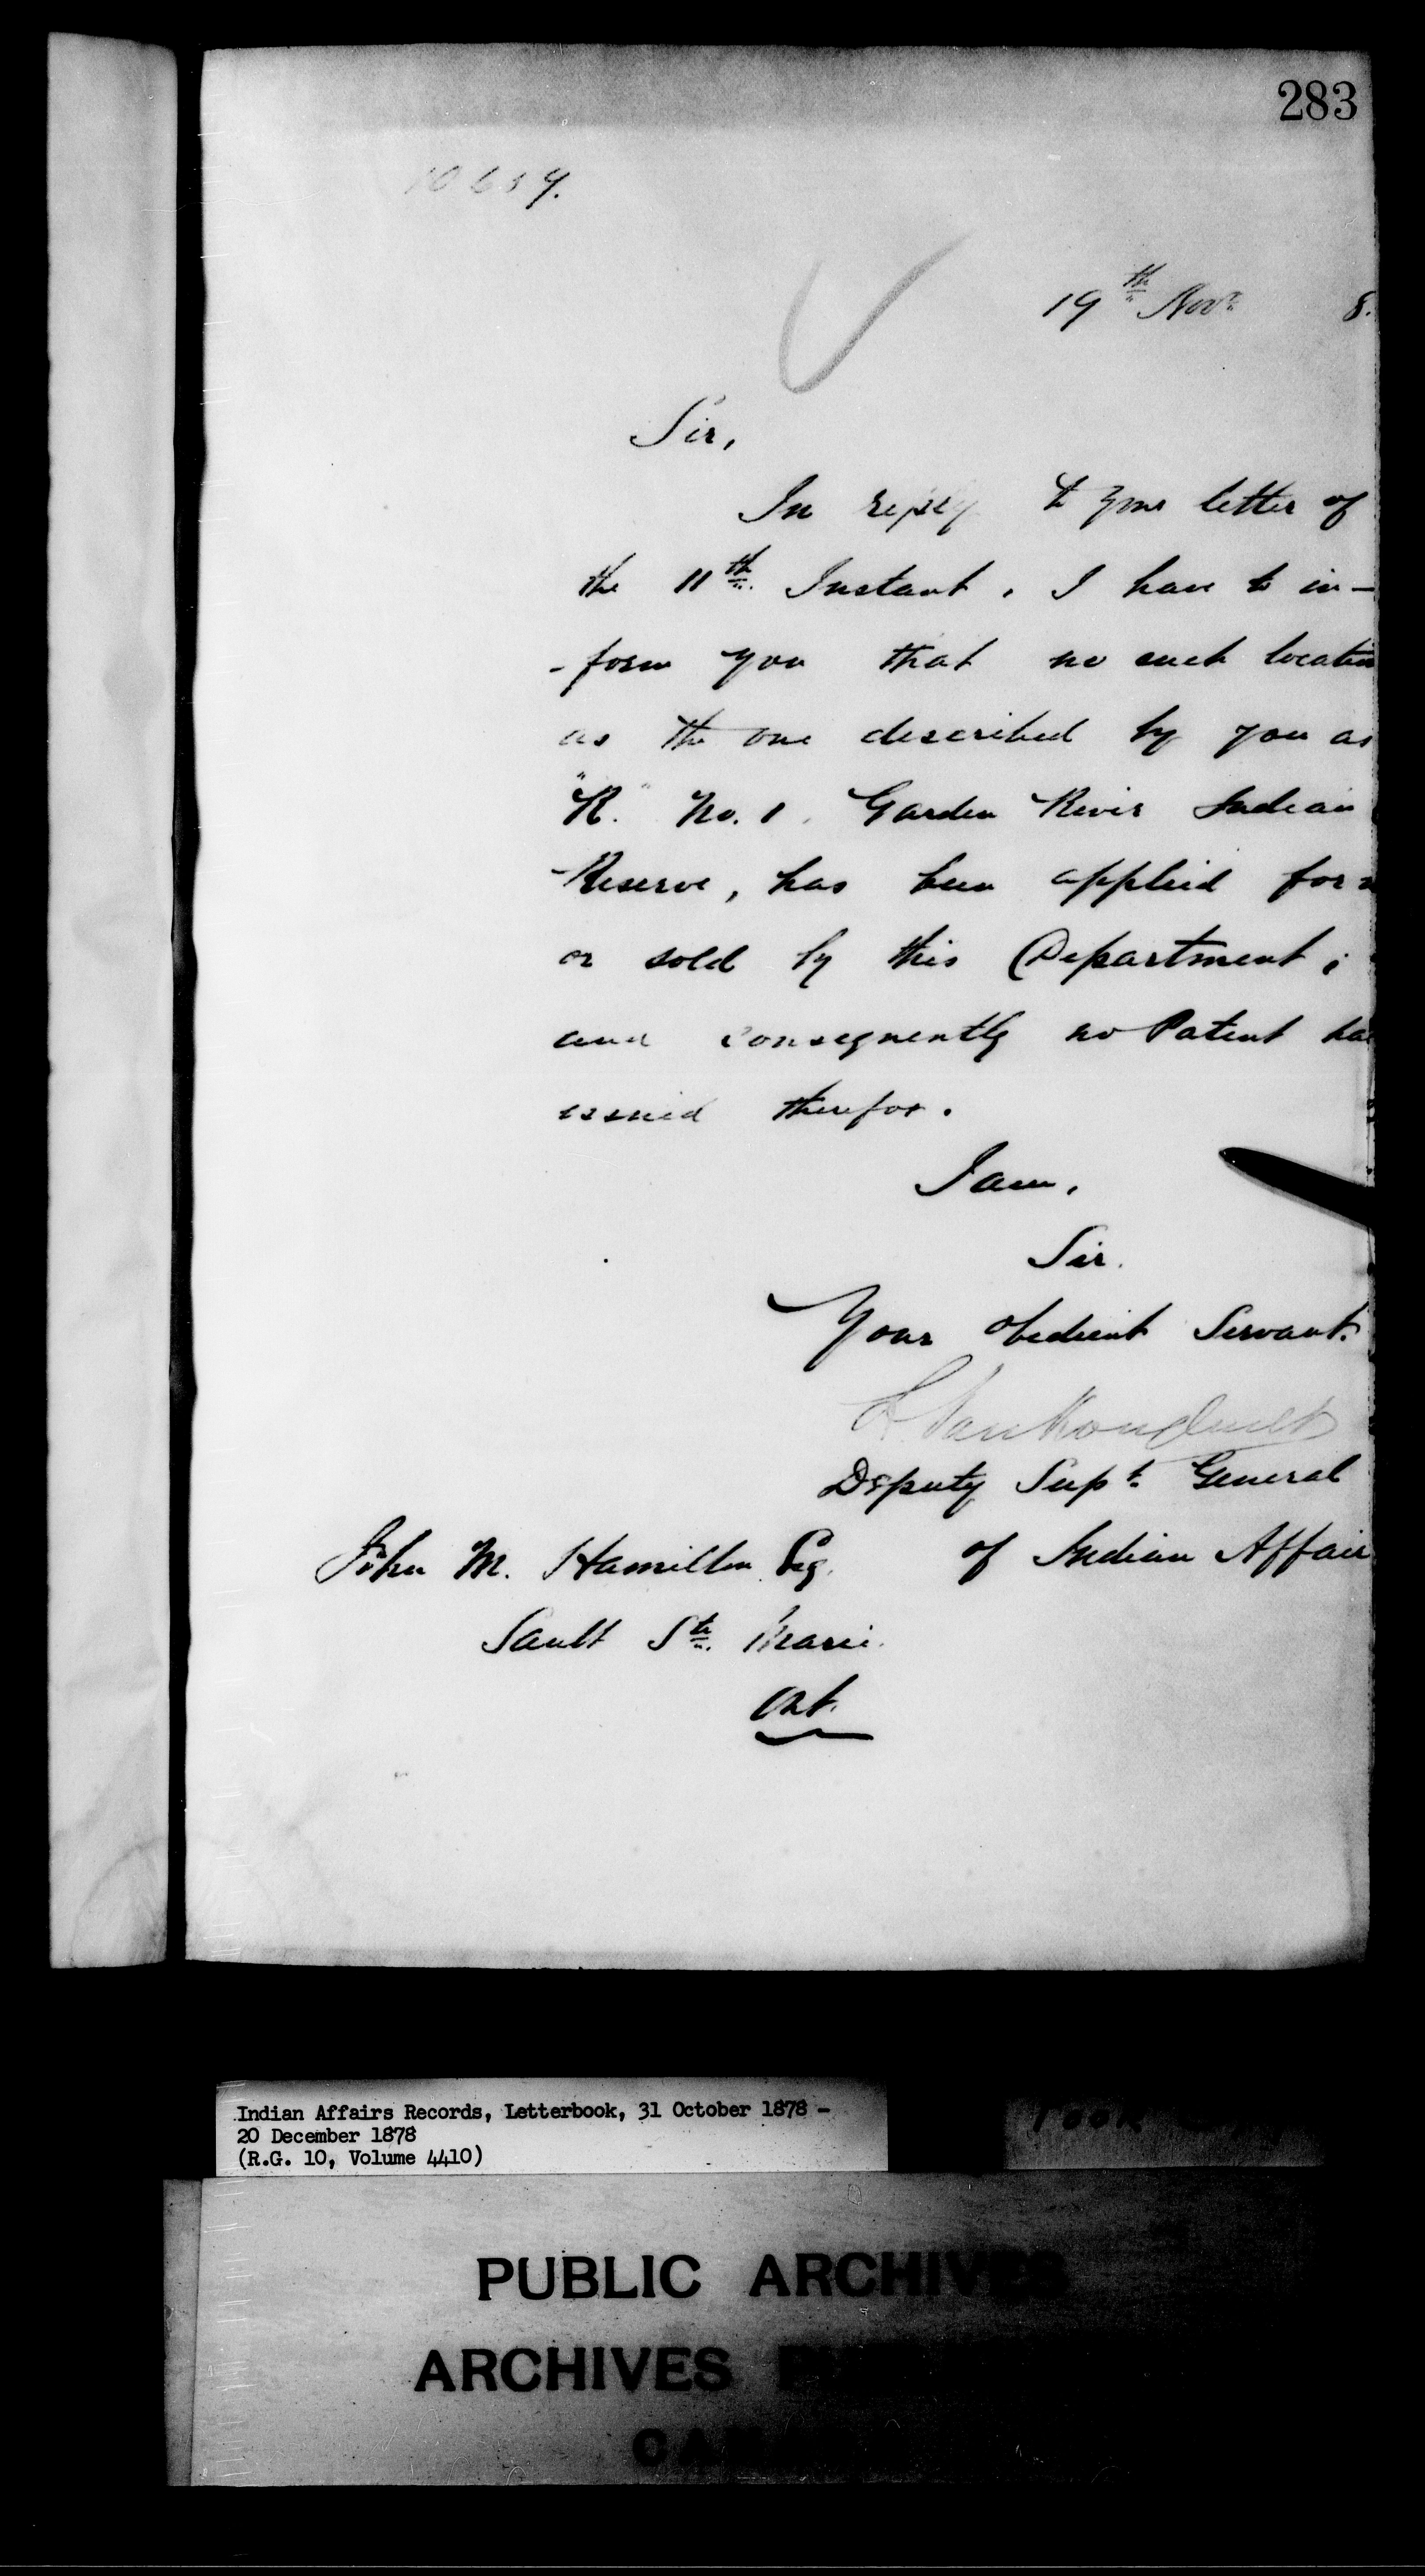 283
19th Novr 8.
Sir,
In reply to your letter of
the 11th Instant, I have to in-
-form you that no such location
as the one described by you as
"R" No. 1, Garden River Indian
Reserve, has been applied for
or sold by this Department;
and consequently no Patent has
issued therefor.
I am,
Sir.
Your obedient Servant.
L. Vankoughnet
Deputy Supt. General
of Indian Affair
John M. Hamilton Esq.
Sault Ste. Marie.
Ont.
Indian Affairs Records, Letterbook, 31 October 1878 -
20 December 1878
(R.G. 10, Volume 4410)
PUBLIC ARCHIVES
ARCHIVES